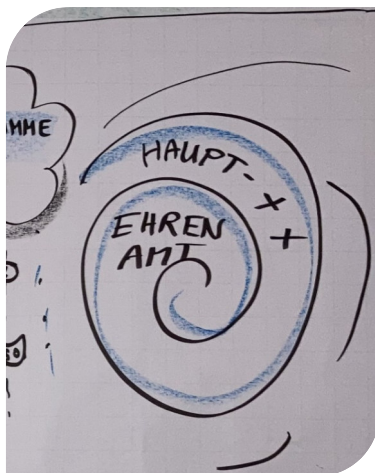 MME
HAUPT- X +
EHREN
AMT
so